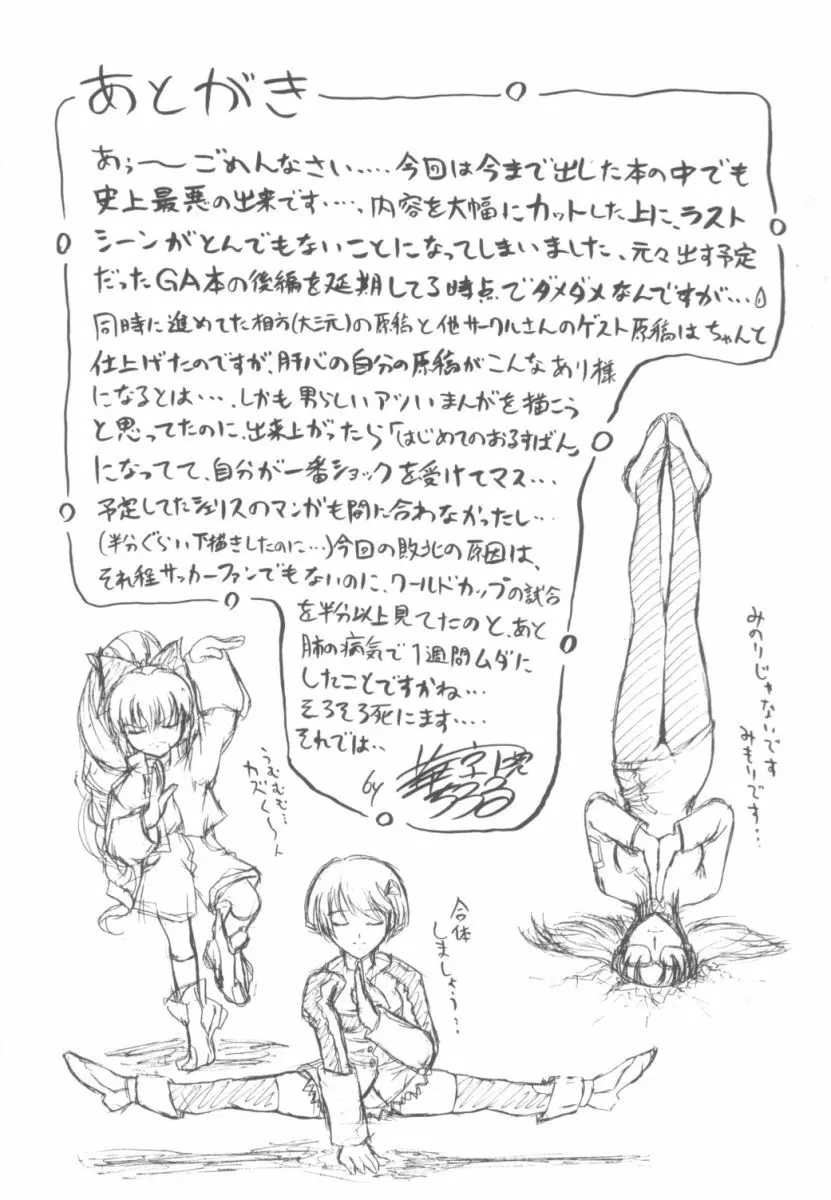 あとがき
あぅ～ごめんなさい….今回は今まで出した本の中でも
史上最悪の出来です…、内容を大幅にカットした上に、ラスト
シーンがとんでもないことになってしまいました、元々出す予定
だったGA本の後編を延期してる時点でダメダメなんですが…
同時に進めてた相方(大三元)の原稿と他サークルさんのゲスト原稿はちゃんと
仕上げたのですが、肝心の自分の原稿がこんなあり様
になるとは…、しかも男らしいアツいまんがを描こう
と思ってたのに、出来上がったら「はじめてのおるすばん」
になってて、自分が一番ショックを受けてマス…
予定してたシェリスのマンガも間に合わなかったし…
(半分ぐらい下描きしたのに…)今回の敗北の原因は、
それ程サッカーファンでもないのに、ワールドカップの試合
を半分以上見てたのと、あと
肺の病気で1週間ムダに
したことですかね…
そろそろ死にます….
それでは..
by
みのりじゃないです
みもりです…
うむむむ…
カズく～ん
合体
しましょう?